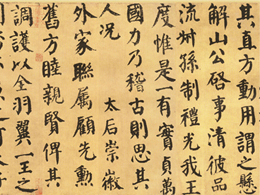 其真方動用謂之懸
解山公啓事清彼品
流叔孫制禮光我王
度惟是一有實貞萬
國力乃稽古則思其
人況 太后崇徽
外家聯属顧先勲
舊方睦親賢俾其
調護以全羽翼一王之